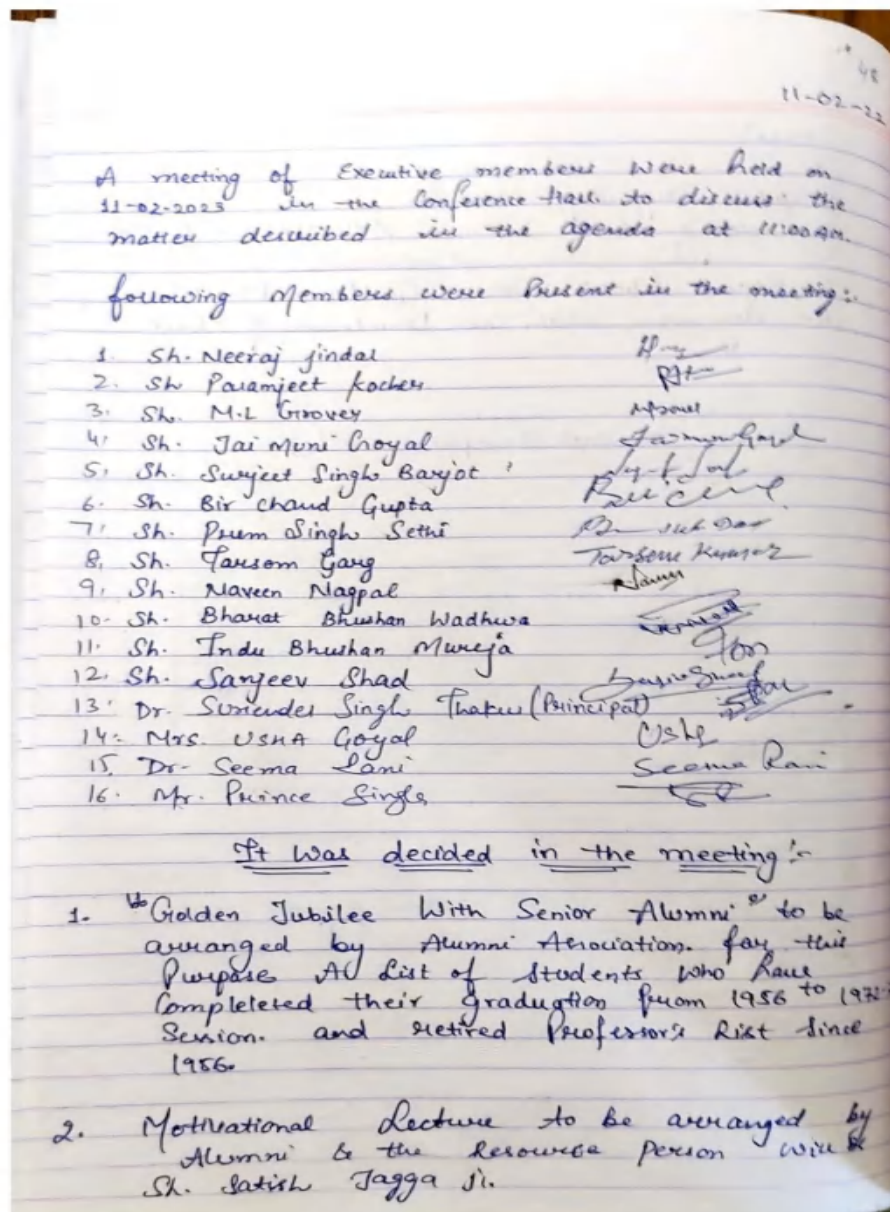 48
11-02-22
A meeting of Executive members were held on
11-02-2023 in the Conference Hall to discuss the
matter described in the agenda at 11:00 Am.
following Members were Present in the meeting:-
1. Sh. Neeraj Jindal
2. Sh Paramjeet Kocher
3. Sh. M.L Grover
4. Sh. Jai Muni Goyal
5. Sh. Surjeet Singh Barjot
6. Sh. Bir Chand Gupta
7. Sh. Prem Singh Sethi
8. Sh. Tarsem Garg Tarsem Kumar
9. Sh. Naveen Nagpal
10. Sh. Bharat Bhushan Wadhwa
11. Sh. Indu Bhushan Mureja
12. Sh. Sanjeev Shad
13. Dr. Surender Singh Thakur (Principal)
14. Mrs. USHA Goyal Usha
15. Dr. Seema Rani Seema Rani
16. Mr. Prince Singla
It was decided in the meeting:-
1. "Golden Jubilee With Senior Alumni" to be
arranged by Alumni Association. for this
Purpose A List of Students who have
Completeted their graduation from 1956 to 1972
Session. and retired Professor's List Since
1956.
2. Motivational Lecture to be arranged by
Alumni & the Resource person will be
Sh. Satish Jagga Ji.